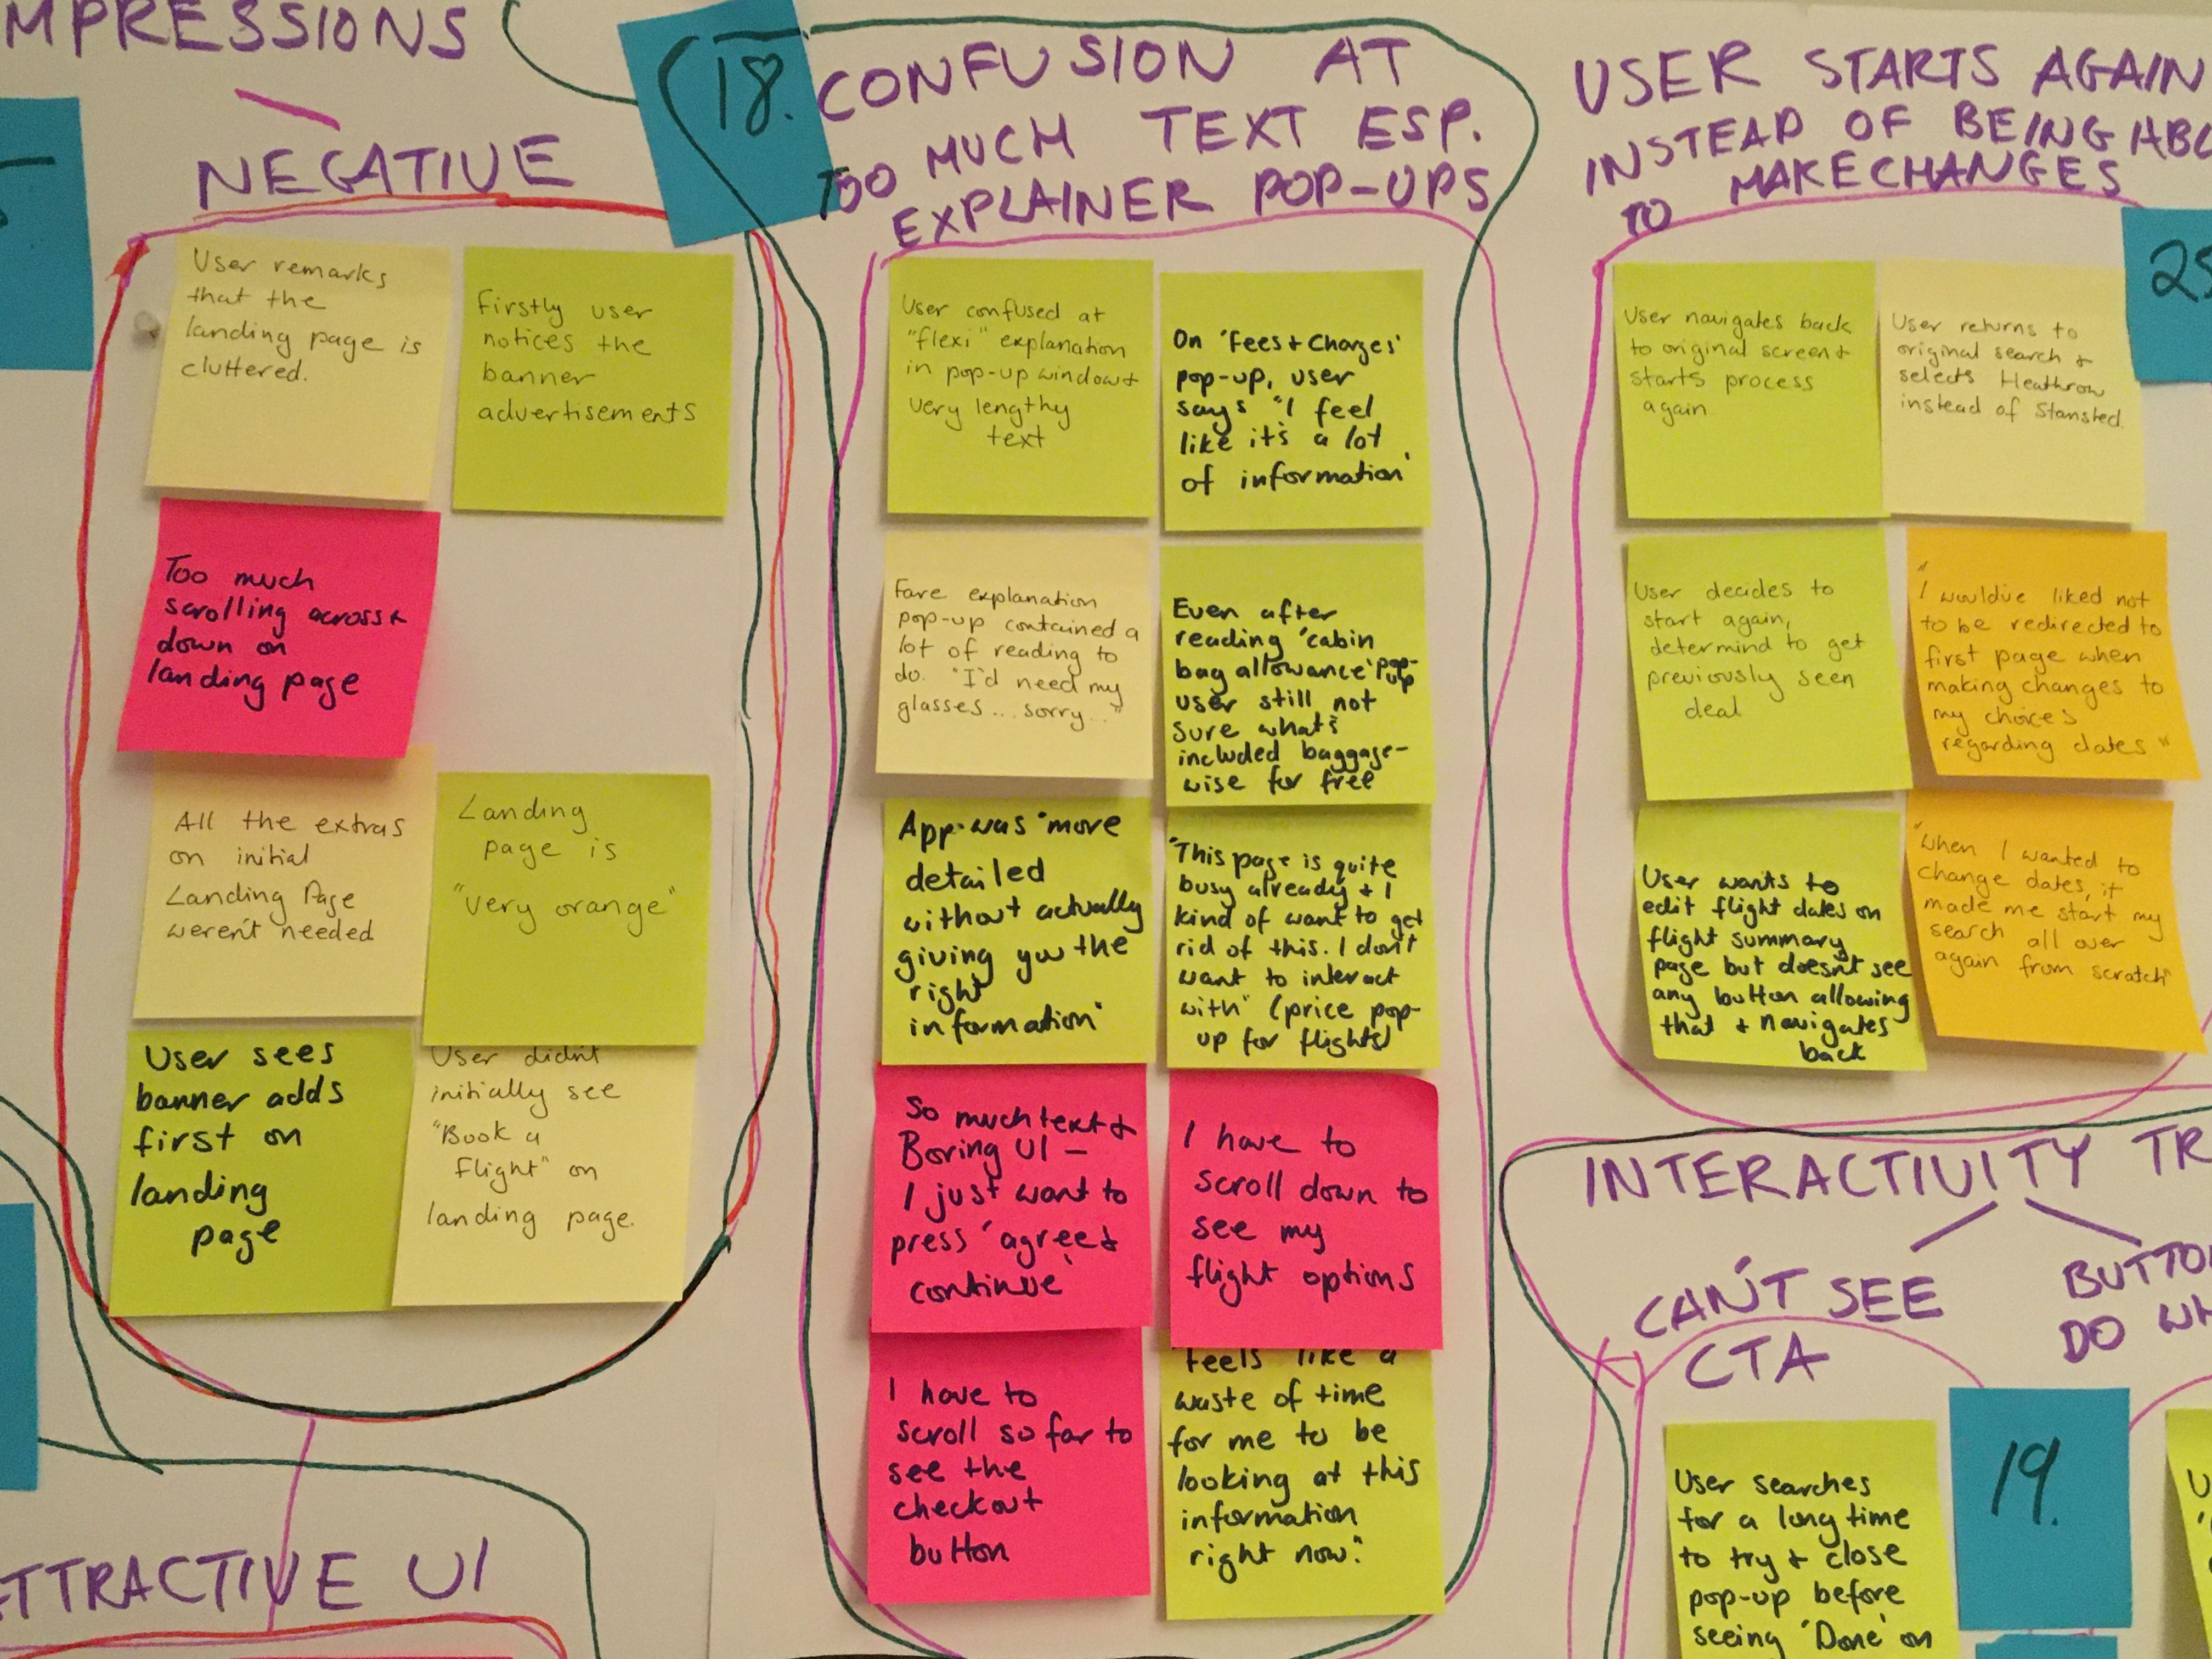 MPRESSIONS
NEGATIVE
User remarks
that the
landing page is
cluttered.
Firstly user
notices the
banner
advertisements
Too much
scrolling across +
down on
landing page
All the extras
on initial
Landing Page
weren't needed
Landing
page is
"very orange"
User sees
banner adds
first on
landing
page
User didn't
initially see
"Book a
flight" on
landing page.
TTRACTIVE UI
18.
CONFUSION AT
TOO MUCH TEXT ESP.
EXPLAINER POP-UPS
User confused at
"flexi" explanation
in pop-up window +
very lengthy
text
On 'Fees + Charges'
pop-up, user
says "I feel
like it's a lot
of information'
Fare explanation
pop-up contained a
lot of reading to
do. "I'd need my
glasses... sorry..."
Even after
reading 'cabin
bag allowance' pop-up
user still not
sure what's
included baggage-
wise for free
App was "more
detailed
without actually
giving you the
right
information"
"This page is quite
busy already + I
kind of want to get
rid of this. I don't
want to interact
with" (price pop-
up for flights)
So much text +
Boring UI -
I just want to
press 'agree +
continue'
I have to
scroll down to
see my
flight options
I have to
scroll so far to
see the
checkout
button
feels like a
waste of time
for me to be
looking at this
information
right now."
USER STARTS AGAIN
INSTEAD OF BEING ABL
TO MAKE CHANGES
25
User navigates back
to original screen +
starts process
again
User returns to
original search +
selects Heathrow
instead of Stansted.
User decides to
start again,
determind to get
previously seen
deal
"I would've liked not
to be redirected to
first page when
making changes to
my choices
regarding dates"
User wants to
edit flight dates on
flight summary
page but doesn't see
any button allowing
that + navigates
back
"When I wanted to
change dates, it
made me start my
search all over
again from scratch"
INTERACTIVITY TR
CAN'T SEE
CTA
BUTTO
DO WH
19.
User searches
for a long time
to try + close
pop-up before
seeing 'Done' on